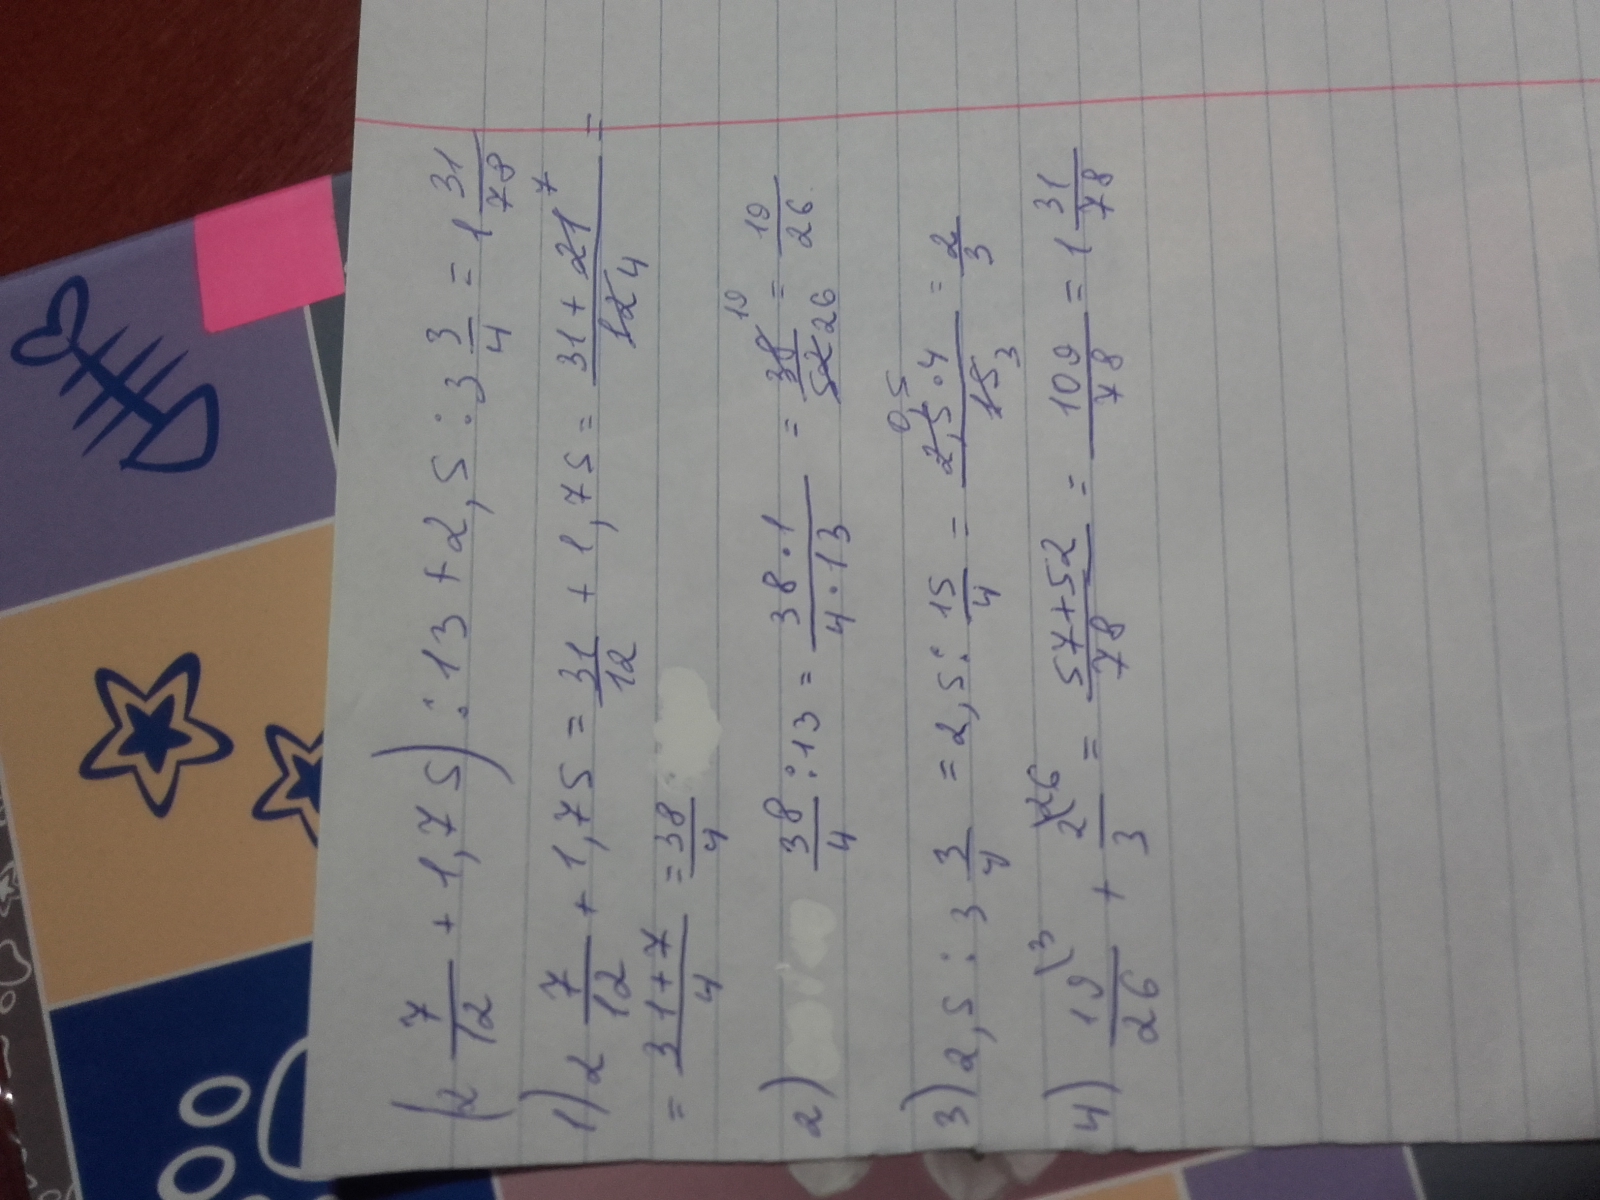 (2 7/12 + 1,75) : 13 + 2,5 : 3 3/4 = 1 31/78
1) 2 7/12 + 1,75 = 31/12 + 1,75 = 31 + 21 7 / 12 4 =
= 31 + 7 / 4 = 38/4
2) 38/4 : 13 = 38 · 1 / 4 · 13 = 38 19 / 52 26 = 19/26
3) 2,5 : 3 3/4 = 2,5 : 15/4 = 2,5 0,5 · 4 / 15 3 = 2/3
4) 19/26 (3 + 2/3 (26 = 57+52 / 78 = 109/78 = 1 31/78